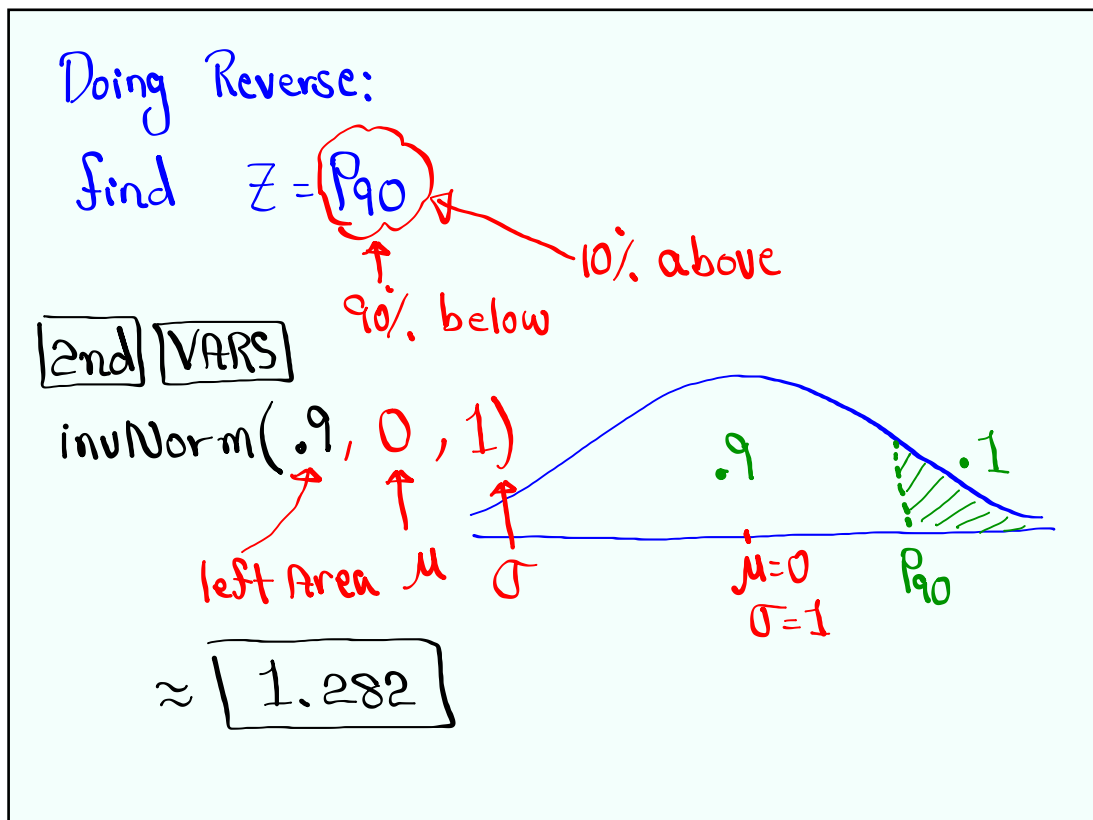 Doing Reverse:
find Z = P90
10% above
90% below
2nd VARS
invNorm(.9, 0, 1)
left Area μ σ
.9
.1
μ=0
σ=1
P90
≈ 1.282